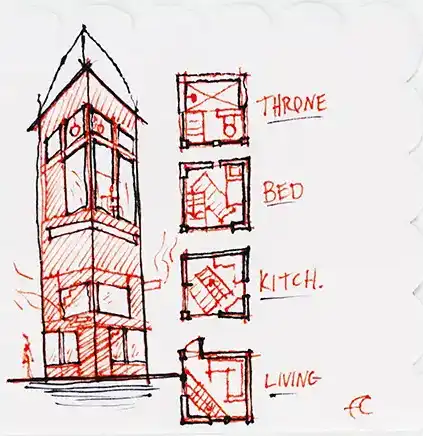 THRONE
BED
KITCH.
LIVING
FC